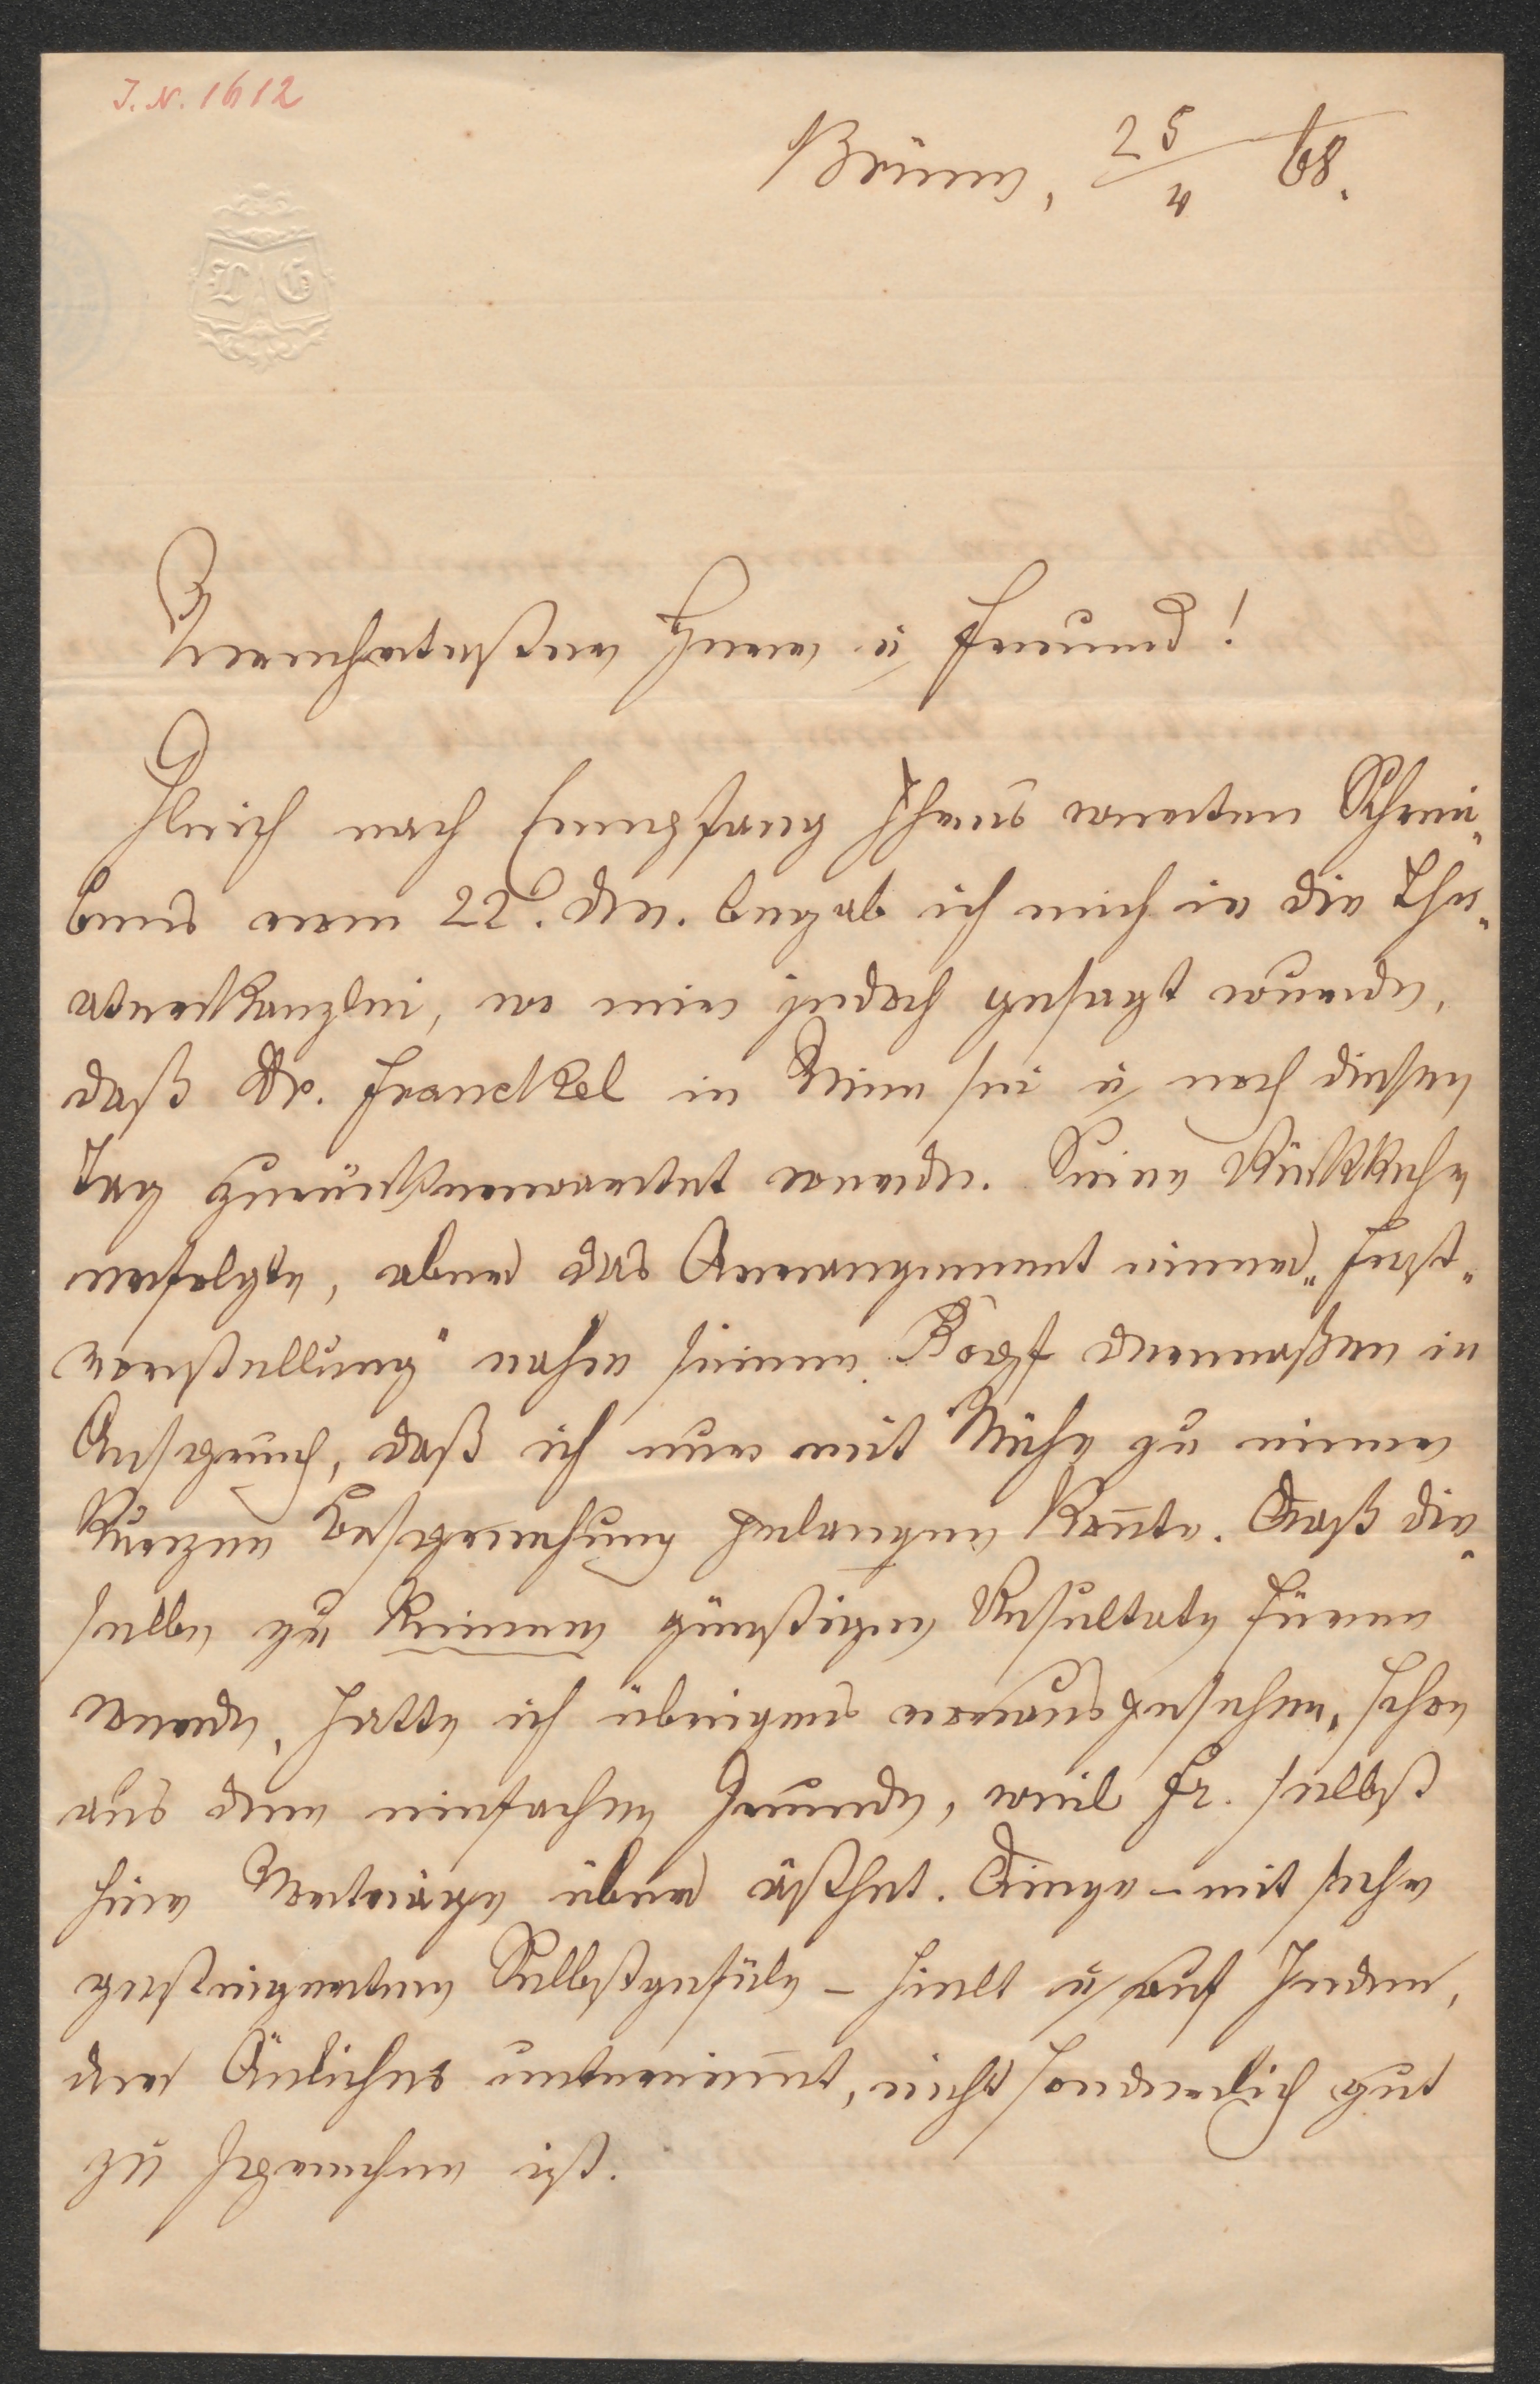 I. N. 1612
Brünn, 25/4 68.
L G
Verehrtester Herr u. Freund!
Gleich nach Empfang Ihres werten Schrei-
bens vom 22. d. M. begab ich mich in die The-
aterkanzlei, wo mir jedoch gesagt wurde,
daß Dr. Franckel in Wien sei u. noch diesen
Tag zurückerwartet werde. Seine Rückkehr
erfolgte, aber das Arrangement einer „Fest-
vorstellung" nahm seinen Kopf dermaßen in
Anspruch, daß ich nur mit Mühe zu einer
kurzen Besprechung gelangen konnte. Daß die-
selbe zu keinem günstigen Resultate füren
werde, hatte ich übrigens vorausgesehen, schon
aus dem einfachen Grunde, weil Fr. selbst
hier Vorträge über ästhet. Dinge – mit sehr
gesteigertem Selbstgefüle – hielt u. auf Jeden,
der Änliches unternimmt, nicht sonderlich gut
zu sprechen ist.